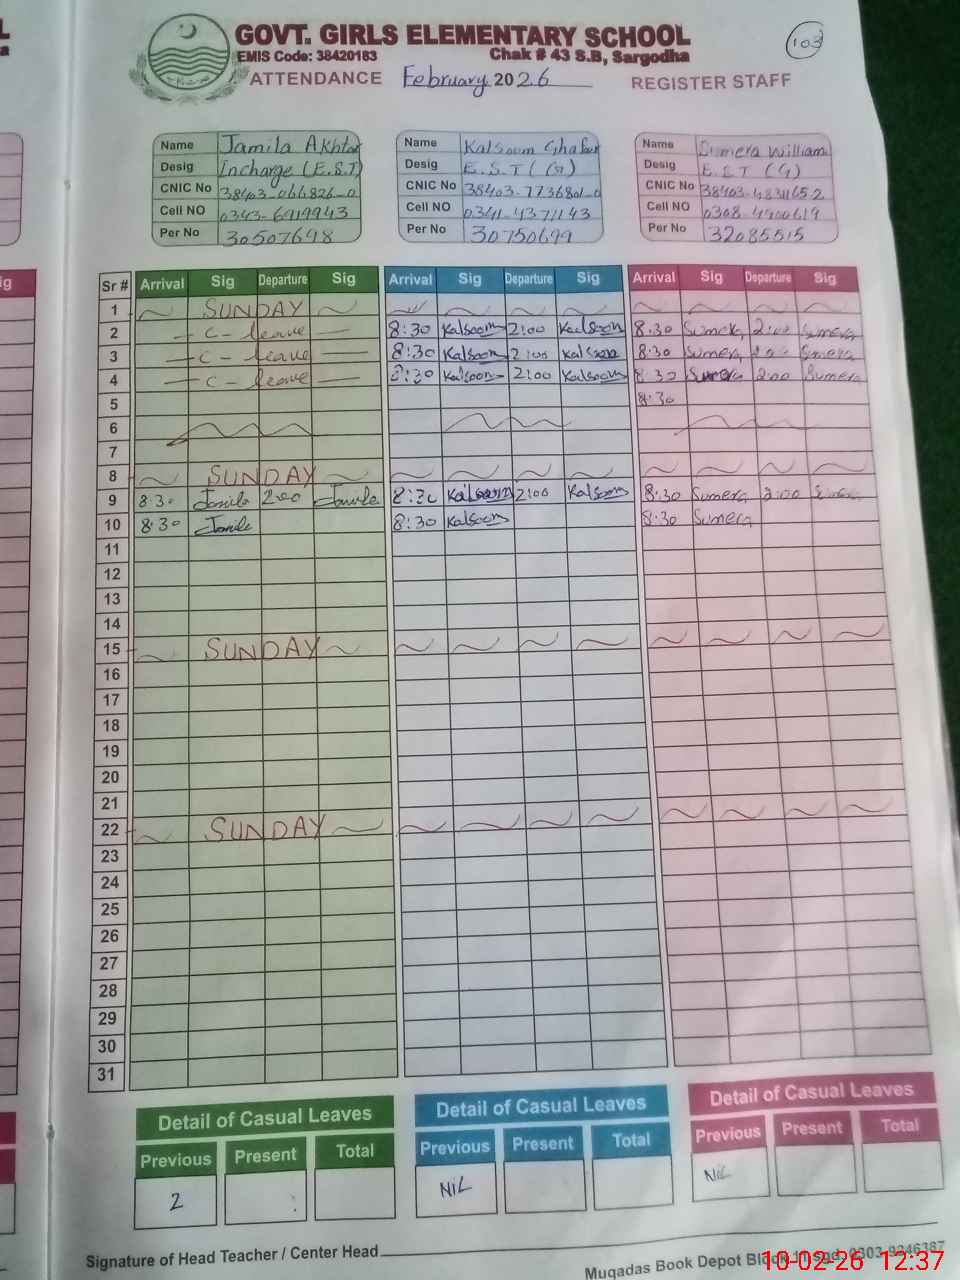 GOVT. GIRLS ELEMENTARY SCHOOL
103
EMIS Code: 38420183 Chak # 43 S.B, Sargodha
ATTENDANCE February 2026 REGISTER STAFF
Name Jamila Akhtar Name Kalsoom Ghafur Name Sumera William
Desig Incharge (E.S.T) Desig E.S.T (G) Desig E.S.T (G)
CNIC No 38403-066826-0 CNIC No CNIC No
Cell NO 0343-6919943 Cell NO 0341-4371143 Cell NO 0308-4900619
Per No 30507648 Per No 30750699 Per No 32085515
Sr # Arrival Sig Departure Sig Arrival Sig Departure Sig Arrival Sig Departure Sig
1 SUNDAY
2 C-leave 8:30 Kalsoom 2:00 Kalsoom 8:30 Sumera 2:00 Sumera
3 C-leave 8:30 Kalsoom 2:00 Kalsoom 8:30 Sumera 2:00 Sumera
4 C-leave 8:30 Kalsoom 2:00 Kalsoom 8:30 Sumera 2:00 Sumera
5 8:30
6
7
8 SUNDAY
9 8:30 Jamila 2:00 Jamila 8:30 Kalsoom 2:00 Kalsoom 8:30 Sumera 2:00 Sumera
10 8:30 Jamila 8:30 Kalsoom 8:30 Sumera
11
12
13
14
15 SUNDAY
16
17
18
19
20
21
22 SUNDAY
23
24
25
26
27
28
29
30
31
Detail of Casual Leaves Detail of Casual Leaves Detail of Casual Leaves
Previous Present Total Previous Present Total Previous Present Total
2 NiL NiL
Signature of Head Teacher / Center Head
Muqadas Book Depot Block 11 sgd. 0303-9246387
10-02-26 12:37